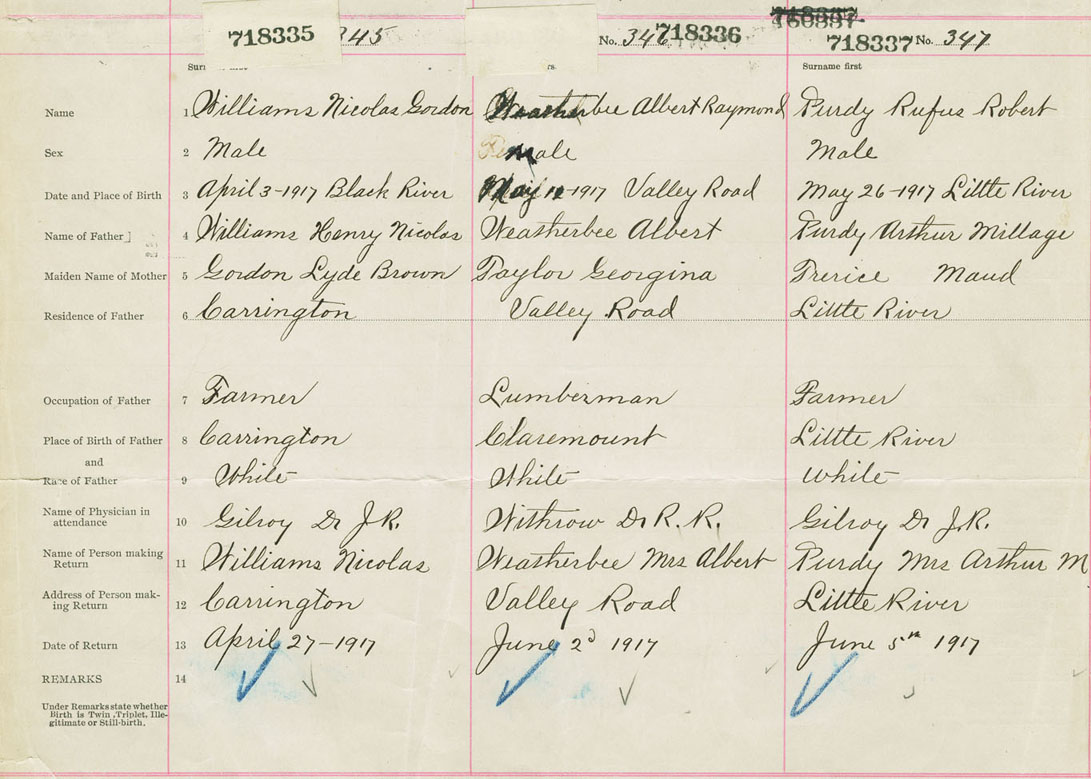 718335 345 No. 346 718336 718337 No. 347
Surname first
Name 1 Williams Nicolas Gordon Weatherbee Albert Raymond Purdy Rufus Robert
Sex 2 Male Male Male
Date and Place of Birth 3 April 3-1917 Black River May 1917 Valley Road May 26-1917 Little River
Name of Father 4 Williams Henry Nicolas Weatherbee Albert Purdy Arthur Millage
Maiden Name of Mother 5 Gordon Lyde Brown Taylor Georgina Trerice Maud
Residence of Father 6 Carrington Valley Road Little River
Occupation of Father 7 Farmer Lumberman Farmer
Place of Birth of Father 8 Carrington Claremount Little River
and
Race of Father 9 White White White
Name of Physician in
attendance 10 Gilroy Dr J.R. Withrow Dr R.R. Gilroy Dr J.R.
Name of Person making
Return 11 Williams Nicolas Weatherbee Mrs Albert Purdy Mrs Arthur M
Address of Person mak-
ing Return 12 Carrington Valley Road Little River
Date of Return 13 April 27-1917 June 2d 1917 June 5th 1917
REMARKS 14
Under Remarks state whether
Birth is Twin, Triplet, Ille-
gitimate or Still-birth.